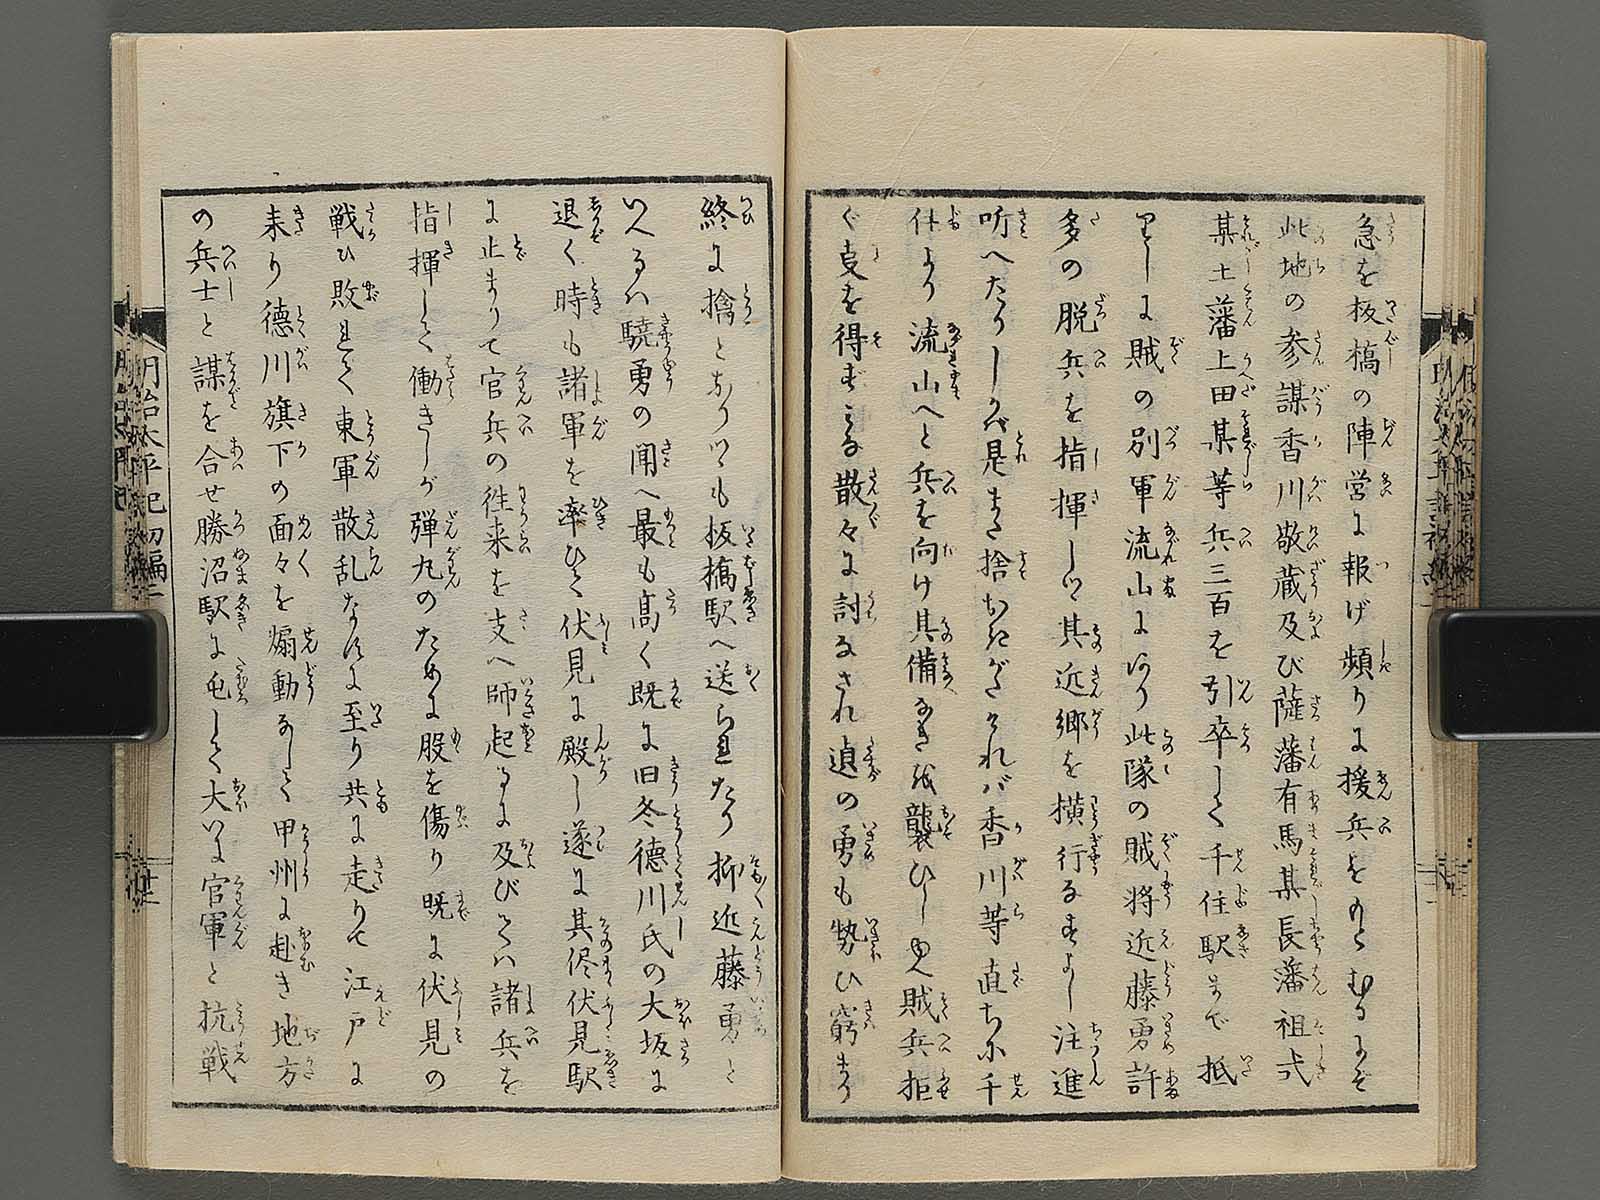 急を板橋の陣営に報げ頻りに援兵をもとむるにぞ
此地の参謀香川敬蔵及び薩藩有馬某長藩祖式
某土藩上田某等兵三百を引卒して千住駅まで抵
りしに賊の別軍流山にあり此隊の賊将近藤勇許
多の脱兵を指揮しつゝ其近郷を横行るすよし注進
聞へたりしかば是また捨おきがたければ香川等直ちに千
住より流山へと兵を向け其備なきを襲ひしゆゑ賊兵拒
ぐ支を得ずみな散々に討なされ遉の勇も勢ひ窮まり
終に擒となりつゝも板橋駅へ送られたり抑近藤勇と
いへるは驍勇の聞へ最も高く既に旧冬徳川氏の大坂に
退く時も諸軍を率ひて伏見に殿し遂に其侭伏見駅
に止まりて官兵の往来を支へ師起るに及びては諸兵を
指揮して働きしが弾丸のために股を傷り既に伏見の
戦ひ敗れて東軍散乱なすに至り共に走りて江戸に
来り徳川旗下の面々を煽動なして甲州に赴き地方
の兵士と謀を合せ勝沼駅に屯して大いに官軍と抗戦
明治太平記初編二